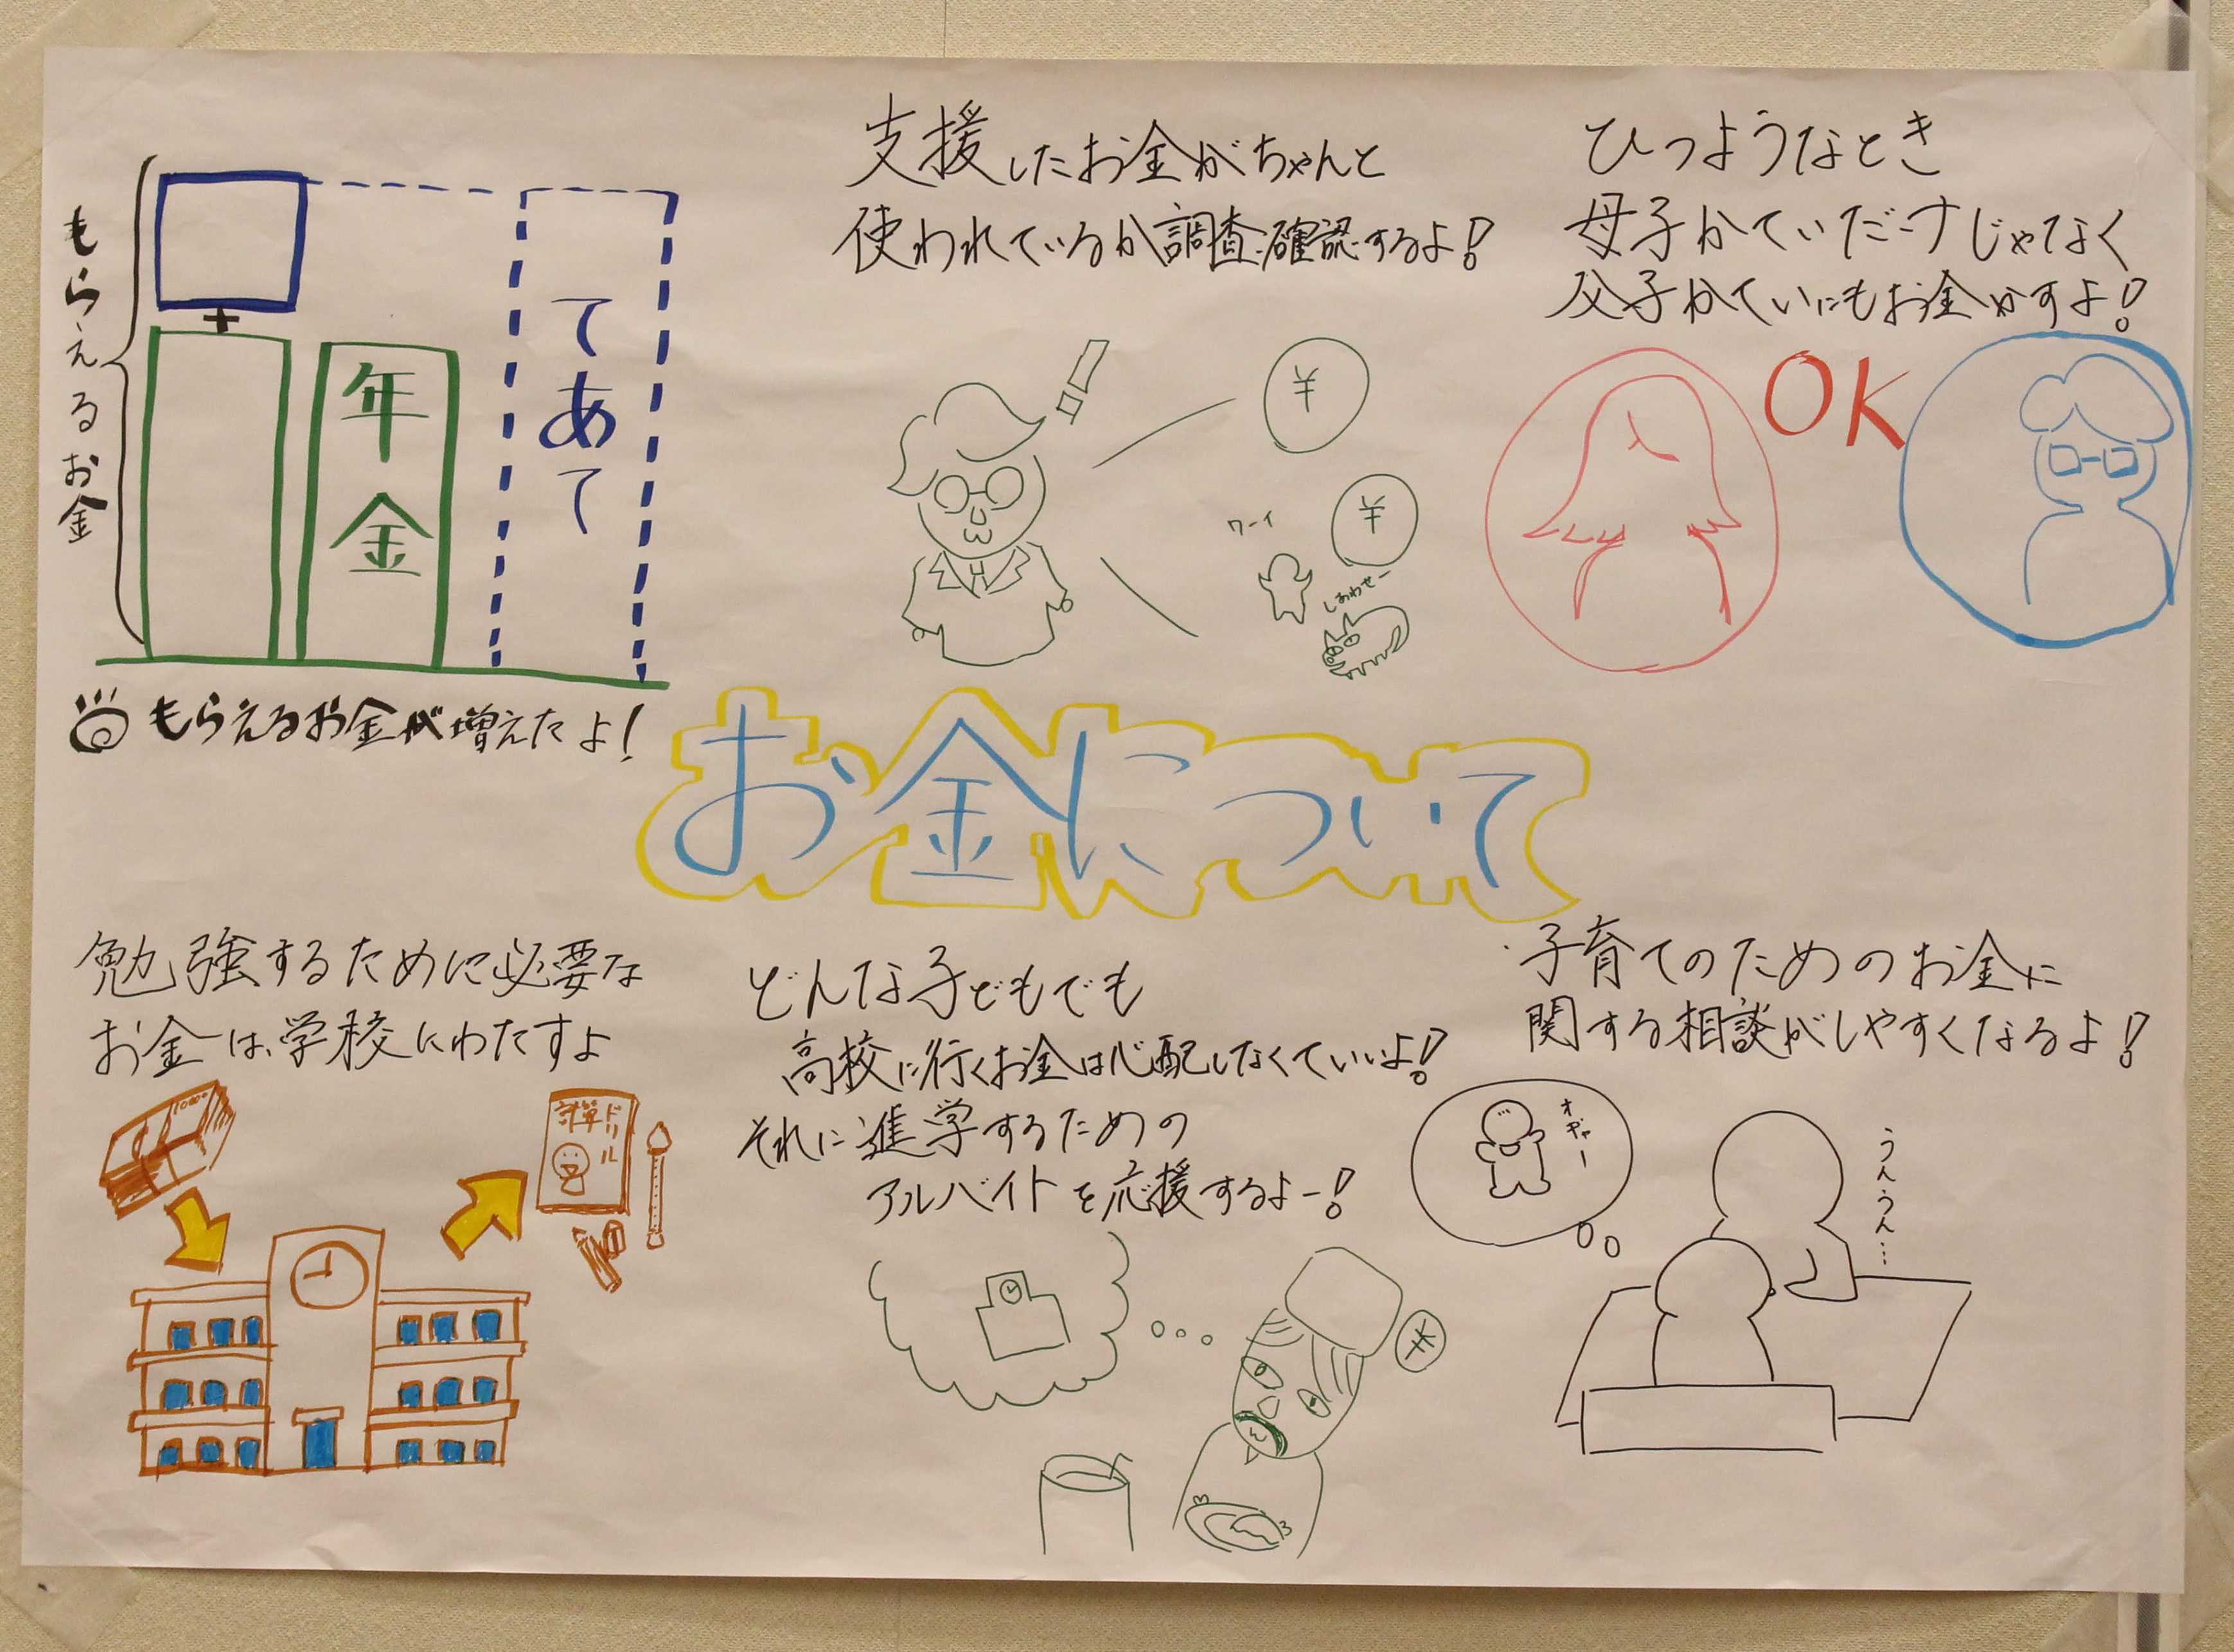 もらえるお金
+
年金
てあて
もらえるお金が増えたよ!
支援したお金がちゃんと
使われているか調査・確認するよ!
¥
¥
ワーイ
しあわせー
ひつようなとき
母子かていだけじゃなく
父子かていにもお金かすよ!
OK
お金について
勉強するために必要な
お金は、学校にわたすよ
計算ドリル
どんな子どもでも
高校に行くお金は心配しなくていいよ!
それに進学するための
アルバイトを応援するよー!
¥
・子育てのためのお金に
関する相談がしやすくなるよ!
オギャー
うんうん…